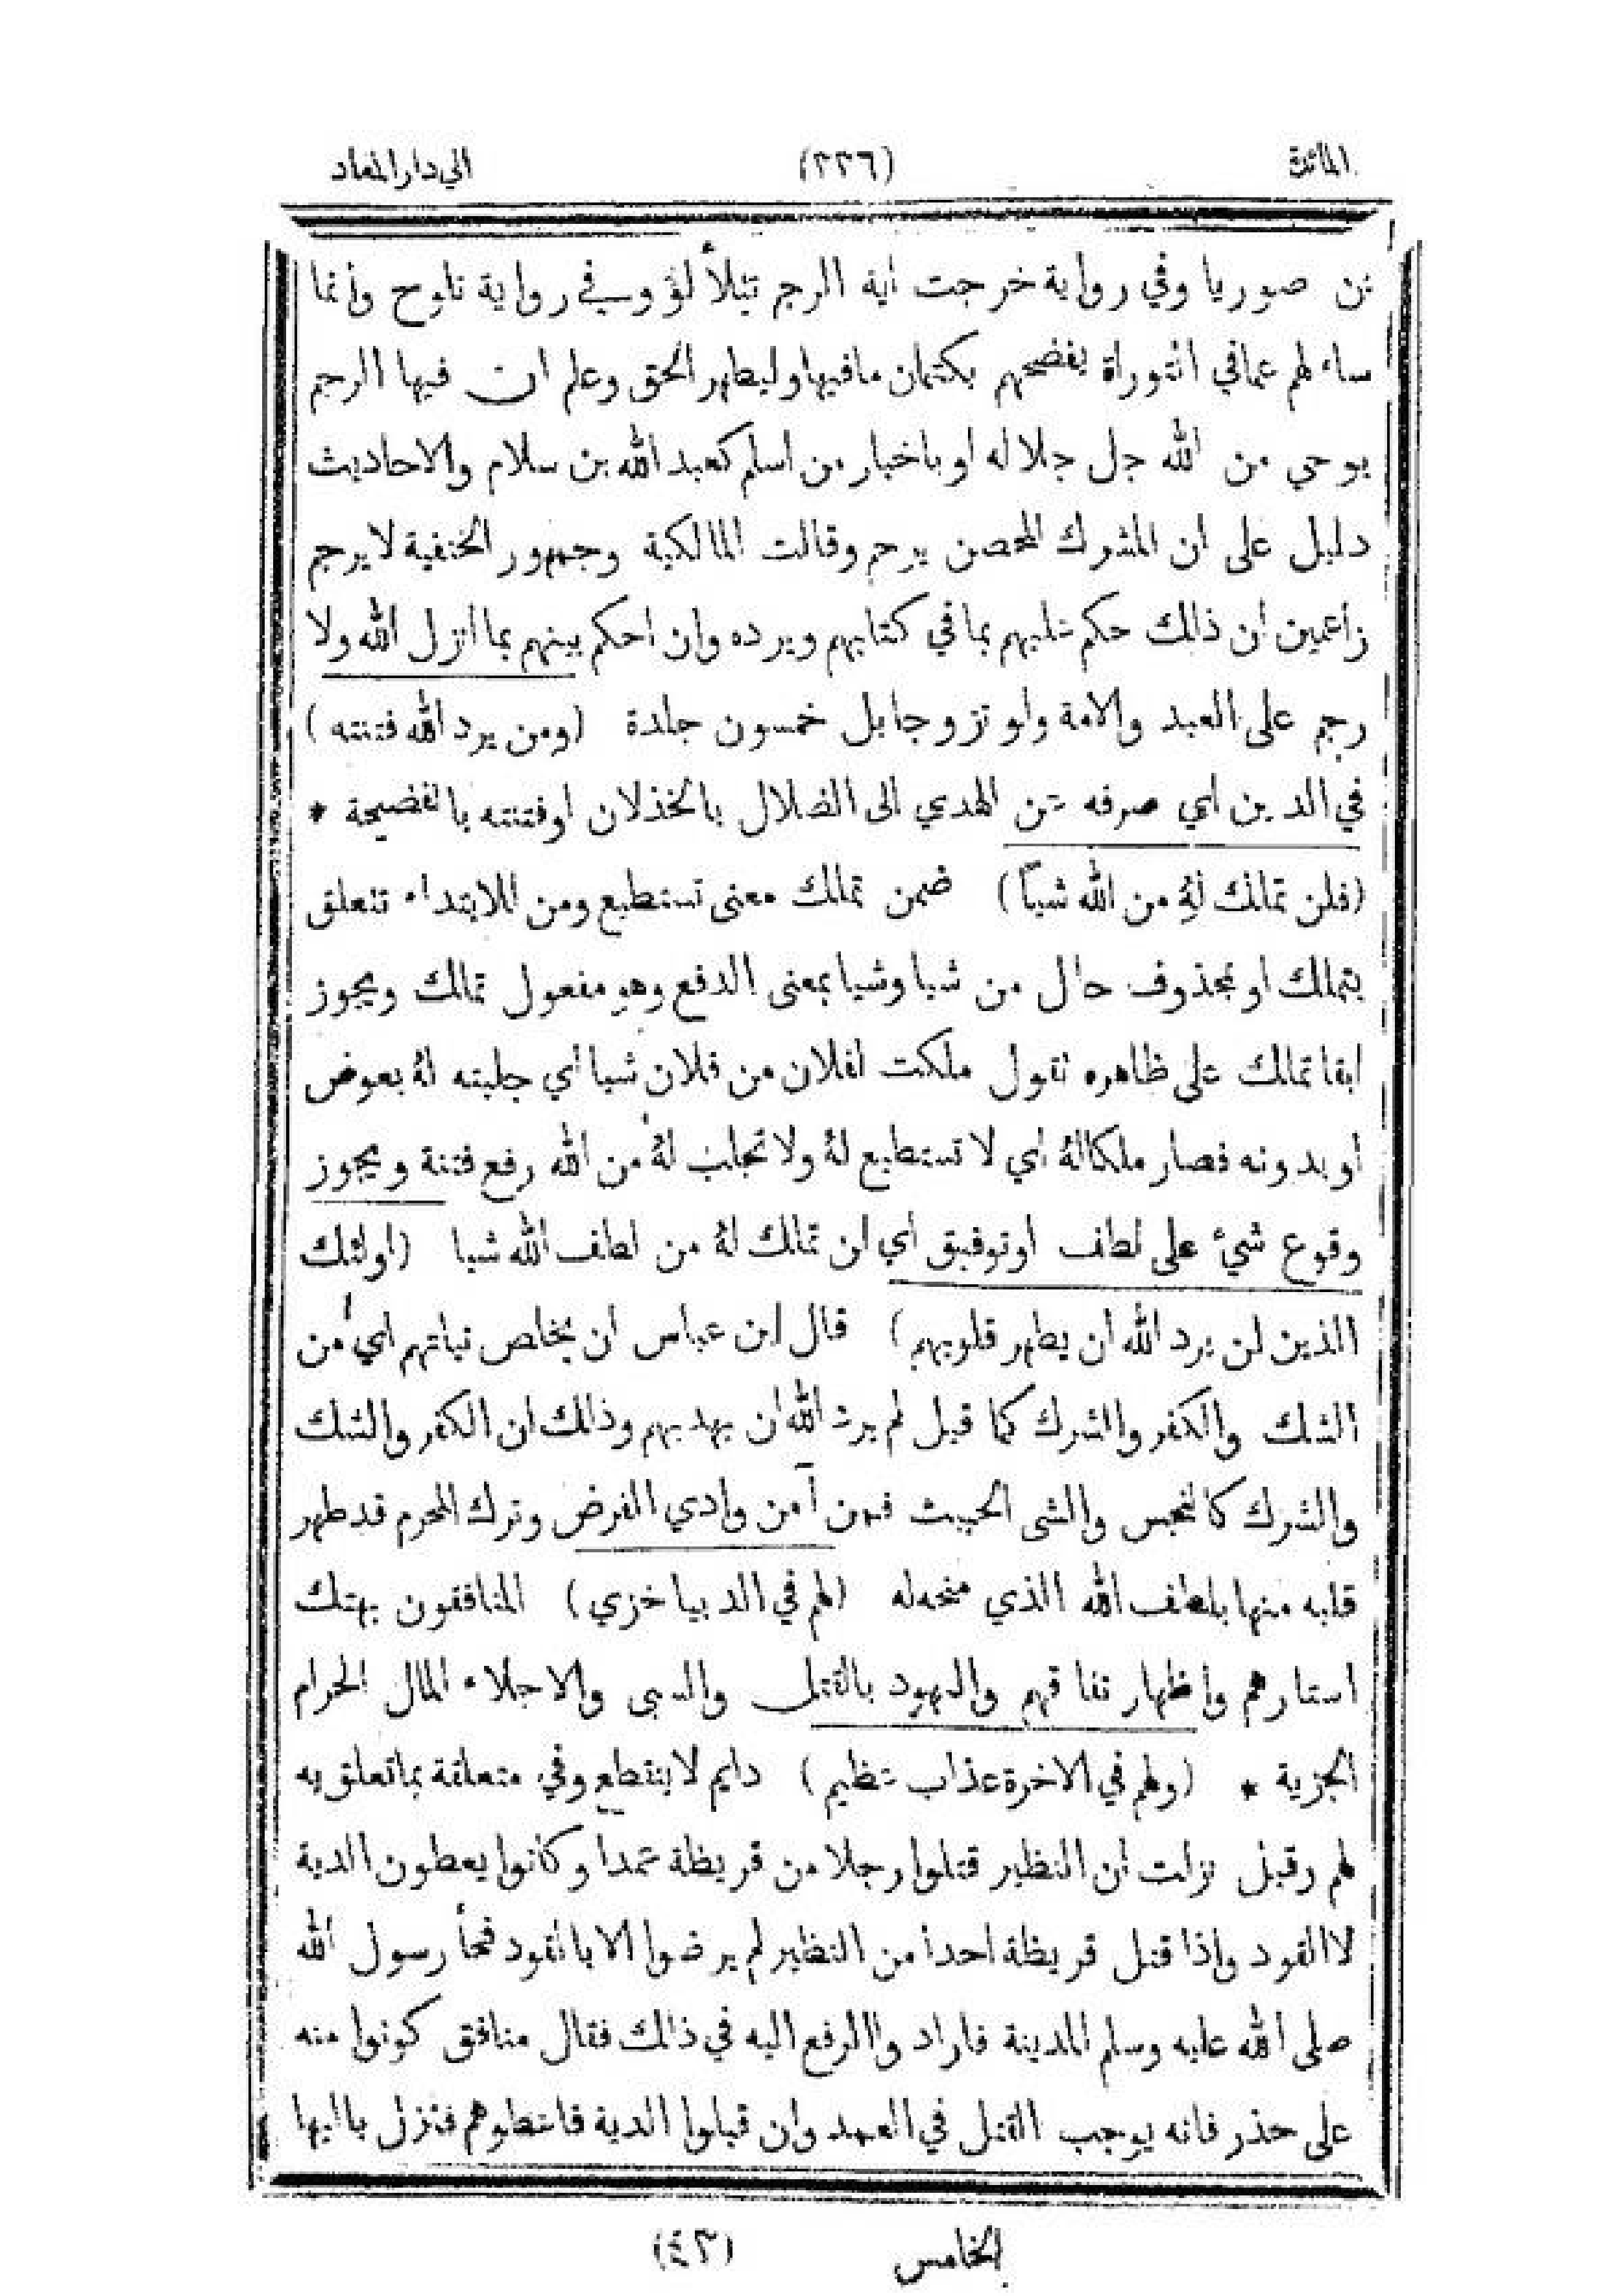 المائدة (٣٣٦) الي دار المعاد
بن صوريا وفي رواية خرجت اية الرجم تتلألؤ وفي رواية تلوح وانما
ساء لهم عما في التوراة يفضحهم بكتمان ما فيها وليظهر الحق وعلم ان فيها الرجم
بوحي من الله جل جلاله او باخبار من اسلم كعبد الله بن سلام والاحاديث
دليل على ان المشرك المحصن يرجم وقالت المالكية وجمهور الحنفية لا يرجم
زاعمين ان ذلك حكم عليهم بما في كتابهم ويرده وان احكم بينهم بما انزل الله ولا
رجم على العبد والامة ولو تزوجا بل خمسون جلدة (ومن يرد الله فتنته)
في الدين اي صرفه عن الهدي الى الضلال بالخذلان او فتنته بالفضيحة *
(فلن تملك له من الله شيأ) ضمن تملك معنى تستطيع ومن للابتداء تتعلق
بتملك او بمحذوف حال من شيا وشيا بمعنى الدفع وهو مفعول تملك ويجوز
ابقا تملك على ظاهره تقول ملكت لفلان من فلان شيا اي جلبته له بعوض
أو بدونه فصار ملكا له اي لا تستطيع له ولا تجلب له من الله رفع فتنة ويجوز
وقوع شيء على لطف او توفيق اي لن تملك له من لطف الله شيا (اولئك
الذين لن يرد الله ان يطهر قلوبهم) قال ابن عباس ان يخلص نياتهم اي من
الشك والكفر والشرك كما قيل لم يرد الله ان يهديهم وذلك ان الكفر والشك
والشرك كالنجس والشى الخبيث فمن آمن وادي الفرض وترك المحرم قد طهر
قلبه منها بلطف الله الذي منحه له (لهم في الدنيا خزي) المنافقون بهتك
استارهم واظهار نفاقهم واليهود بالقتل والسبى والاجلاء المال الحرام
الجزية * (ولهم في الاخرة عذاب عظيم) دايم لا ينقطع وفي متعلقة بما تعلق به
لهم وقيل نزلت ان النظير قتلوا رجلا من قريظة عمدا وكانوا يعطون الدية
لا القود واذا قتل قريظة احدا من النظير لم يرضوا الا بالقود فجأ رسول الله
صلى الله عليه وسلم المدينة فاراد واالرفع اليه في ذلك فقال منافق كونوا منه
على حذر فانه يوجب القتل في العمد وان قبلوا الدية فاعطوهم فنزل يا ايها
الخامس (٤٣)